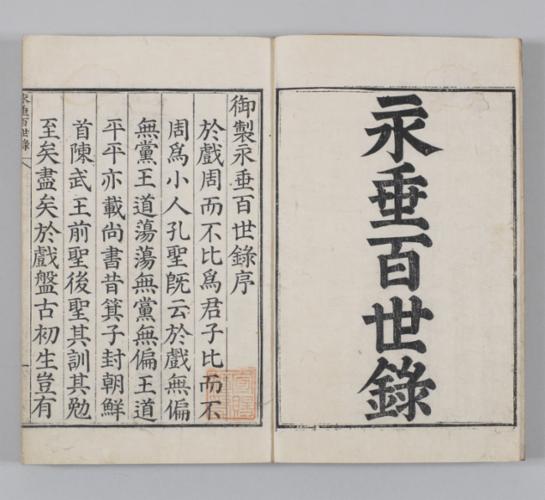 永垂百世錄
御製永垂百世錄序
於戲周而不比爲君子比而不
周爲小人孔聖旣云於戲無偏
無黨王道蕩蕩無黨無偏王道
平平亦載尚書昔箕子封朝鮮
首陳武王前聖後聖其訓其勉
至矣盡矣於戲盤古初生豈有
永垂百世錄